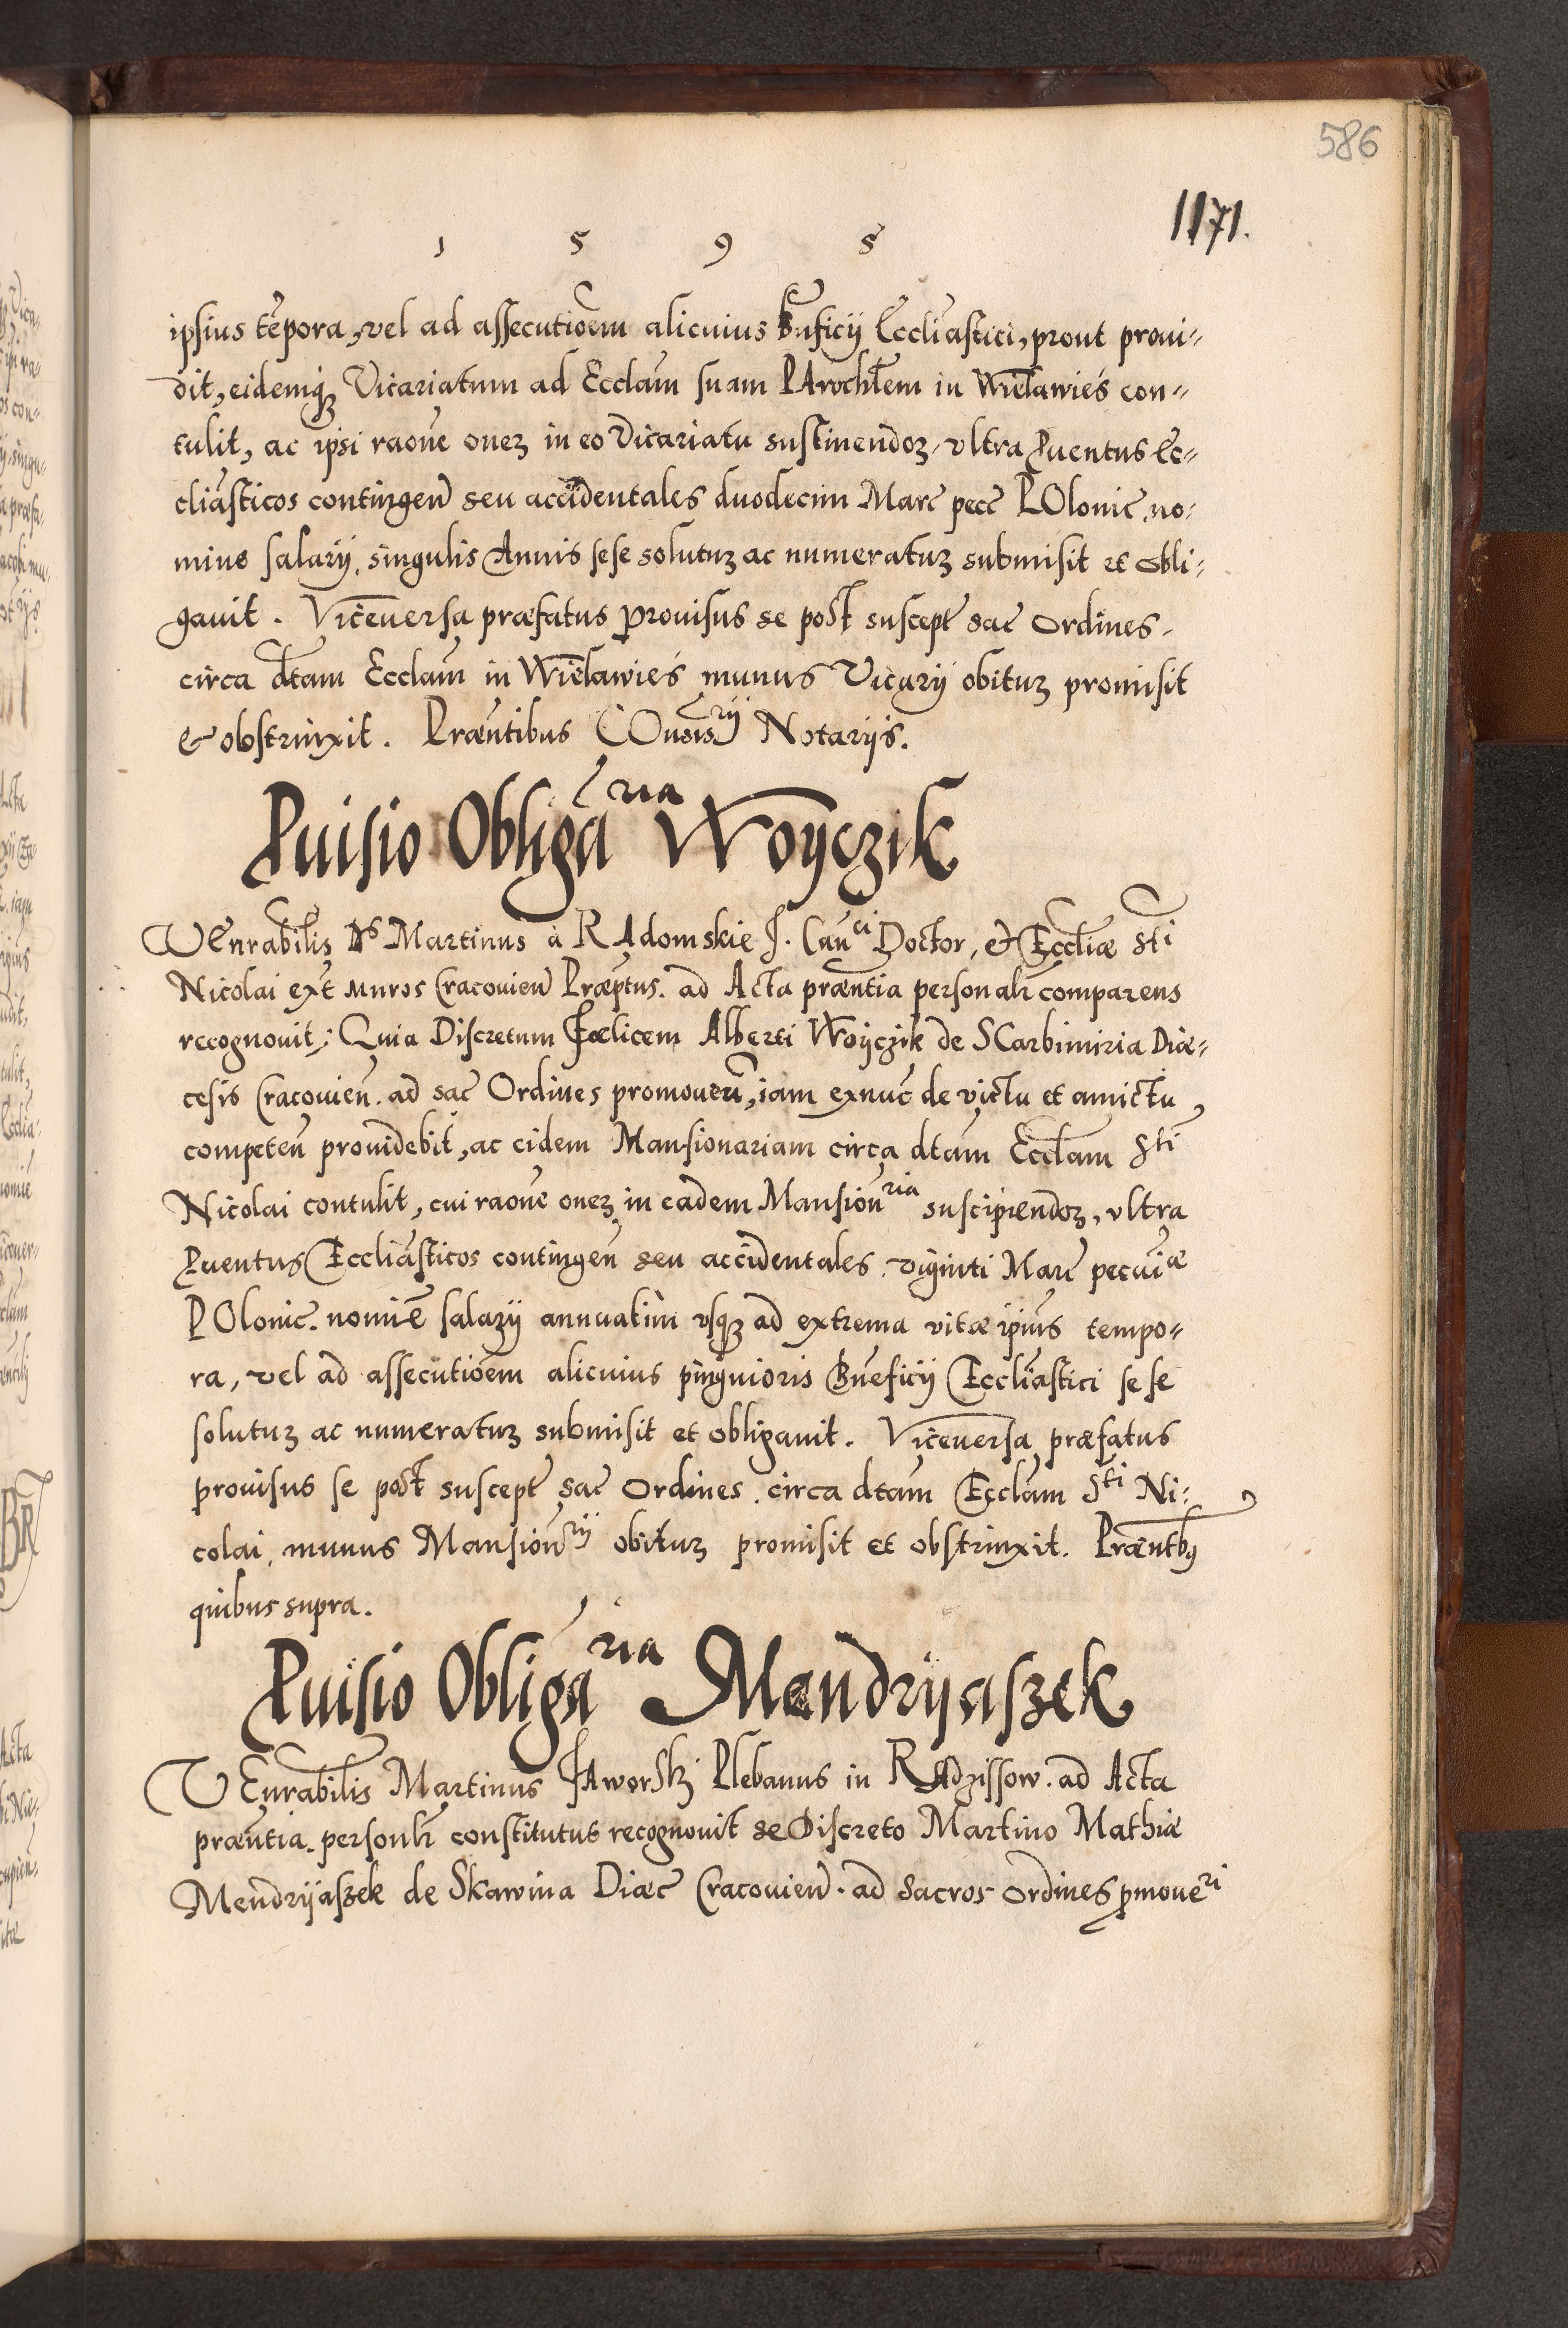 586
1171.
1 5 9 5
ipsius tēpora, vel ad assecutiōem alicuius Bnficij Eccliastici, prout proui-
dit, eidemq₃ Vicariatum ad Ecclam suam PArochlem in Wielawieś con-
tulit, ac ipsi raone onez in eo Vicariatu sustinendoz, vltra Puentus Ec-
cliasticos contingen seu accidentales duodecim Marc pecc POlonic, no-
mine salarij, singulis Annis sese solutuz ac numeratuz submisit et obli-
gauit. Viceuersa præfatus Prouisus se post suscept sac Ordines,
circa dtam Ecclam in Wielawieś munus Vicarij obituz promisit
& obstrinxit. Præntibus COnsisrij Notarijs.
Puisio Obligaria Woyczik
VEnrabilis Ds Martinus à RAdomskie J. Canci Doctor, & Eccliæ Sti
Nicolai ext muros Cracouien Præptus. ad Acta præntia personalr comparens
recognouit; Quia Discretum Fœlicem Alberti Woyczik de SCarbimiria Diæ-
cesis Cracouien. ad sac Ordines promouen, iam exnuc de victu et amictu
competen prouidebit, ac eidem Mansionariam circa dtam Ecclam Sti
Nicolai contulit, cui raone onez in eadem Mansionria suscipiendoz, vltra
Puentus Eccliasticos contingen seu accidentales viginti Marc pecuiæ
POlonic. nomie salarij annuatim vsq₃ ad extrema vitæ ipius tempo-
ra, vel ad assecutiōem alicuius pinguioris Bneficij Eccliastici sese
solutuz ac numeratuz submisit et obligauit. Viceuersa præfatus
prouisus se post suscept sac Ordines circa dtam Ecclam Sti Ni-
colai, munus Mansionrij obituz promisit et obstrinxit. Præntbus
quibus supra.
Puisio Obligaria Mendryaszek
VEnrabilis Martinus JAworski Plebanus in RAdzissow. ad Acta
præntia personlr constitutus recognouit se Discreto Martino Mathiæ
Mendryaszek de Skawina Diæc Cracouien. ad Sacros ordines pmoueri